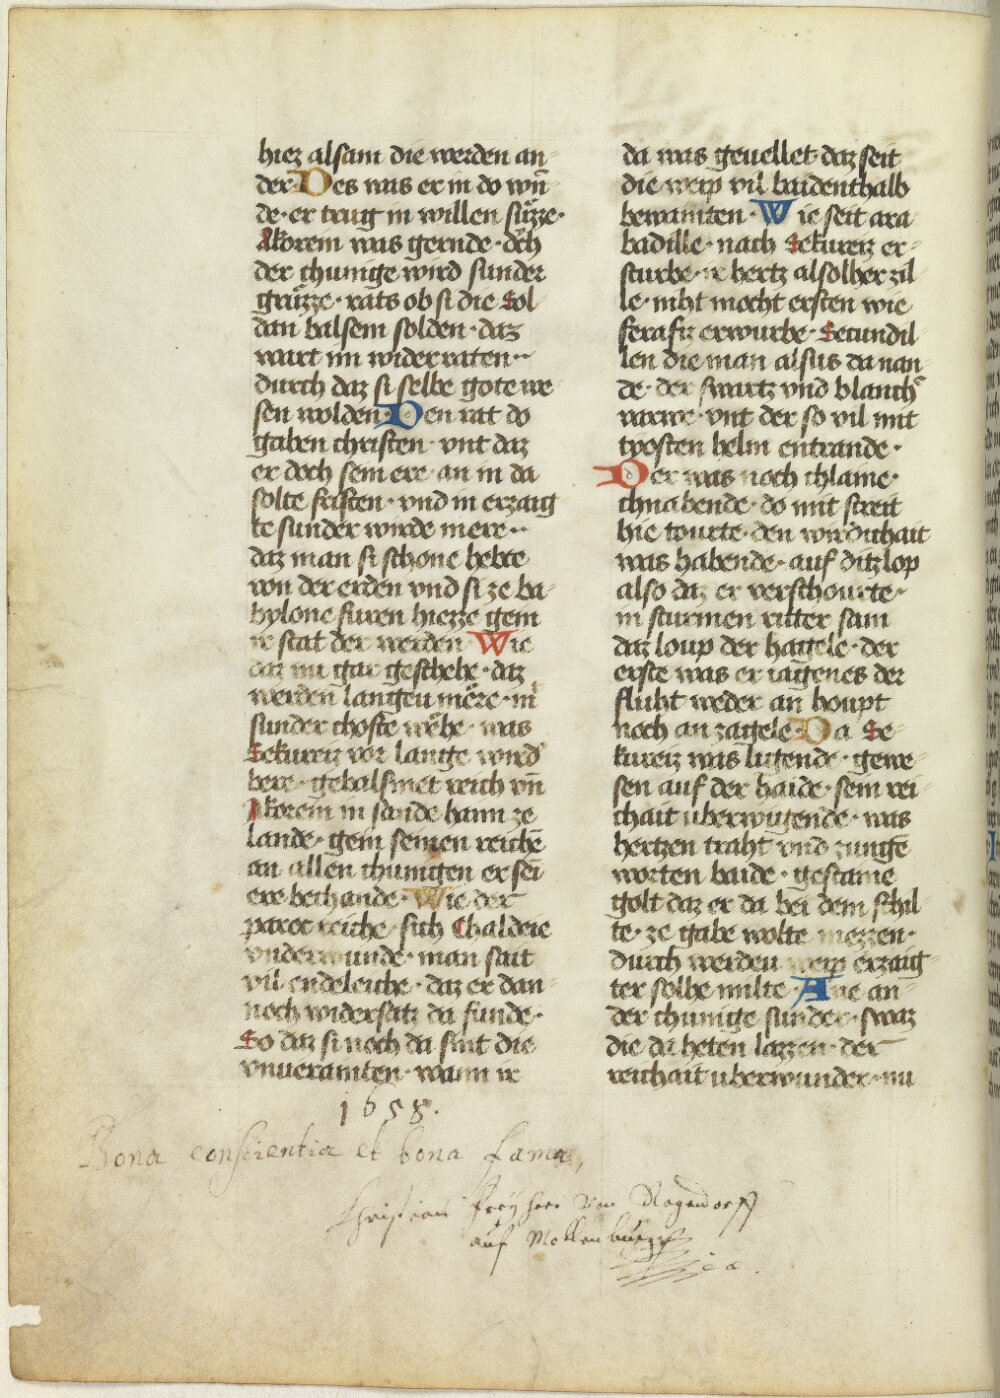 hiez alsam die werden an-
der· Des was er in do wn̄
de· er trug in willen süzze·
Akorein was gernde· doch
der chunige wird sunder
grüzze· rats ob si die Sol-
dan balsem solden· daz
wart im widerraten··
durch daz si selbe gote we-
sen wolden· Den rat do
gaben christen· vnt daz
er doch sein ere· an in da
solte fristen· vnd in erzaig-
te sunder wirde mere··
daz man si schone hebte
von der erden vnd si ze ba-
bylone furen hiezze gein
ir stat der werden· Wie
daz nu gar geschehe· daz
werden langeu märe· in
sunder choste wehe· was
Sekureiz vor lange wird
bere· gebalsmet reich vn̄
Akorein in sande hann ze
lande· gein seinen reichē
an allen chunigen er sei
ere bechande· Wie der
paroc reiche· sich Chaldeie
vnderwunde· man sait
vil endeleiche· daz er dan-
noch widersatz da funde·
So daz si noch da sint die
vnueramten· wann ir
da was geuellet daz seit
die weip vil baidenthalb
bewamten· Wie seit ara-
badille· nach Sekureiz er-
sturbe· ir hertz alsolher zil-
le· niht mocht ersten wie
ferafiz erwurbe· Secundil-
len die man alsus da nan-
de· der swartz vnd blancher
varwe· vnt der so vil mit
tyosten helm entrande·
Der was noch chlaine·
chnabende· do mit streit
hie tourte· den wirdichait
was habende· auf ditz lop
also daz er verschourte·
in sturmen ritter sam
daz loup der hagele· der
erste was er iagenes der
fluht weder an houpt
noch an zagele· Da Se-
kureiz was ligende· gewe-
sen auf der haide· sein rei-
chait uberwigende· was
hertzen traht vnd zunge
worten baide· gestaine
golt daz er da bei dem schil-
te· ze gabe wolte mezzen·
durch werden weip erzaig-
ter solhe milte· Ane an-
der chunige sunder· swaz
die da heten lazzen· der
reichait uberwunder· nu
1658.
Bona conscientia et bona fama,
Christian Freyherr von Rogendorff
auf Mollenburg